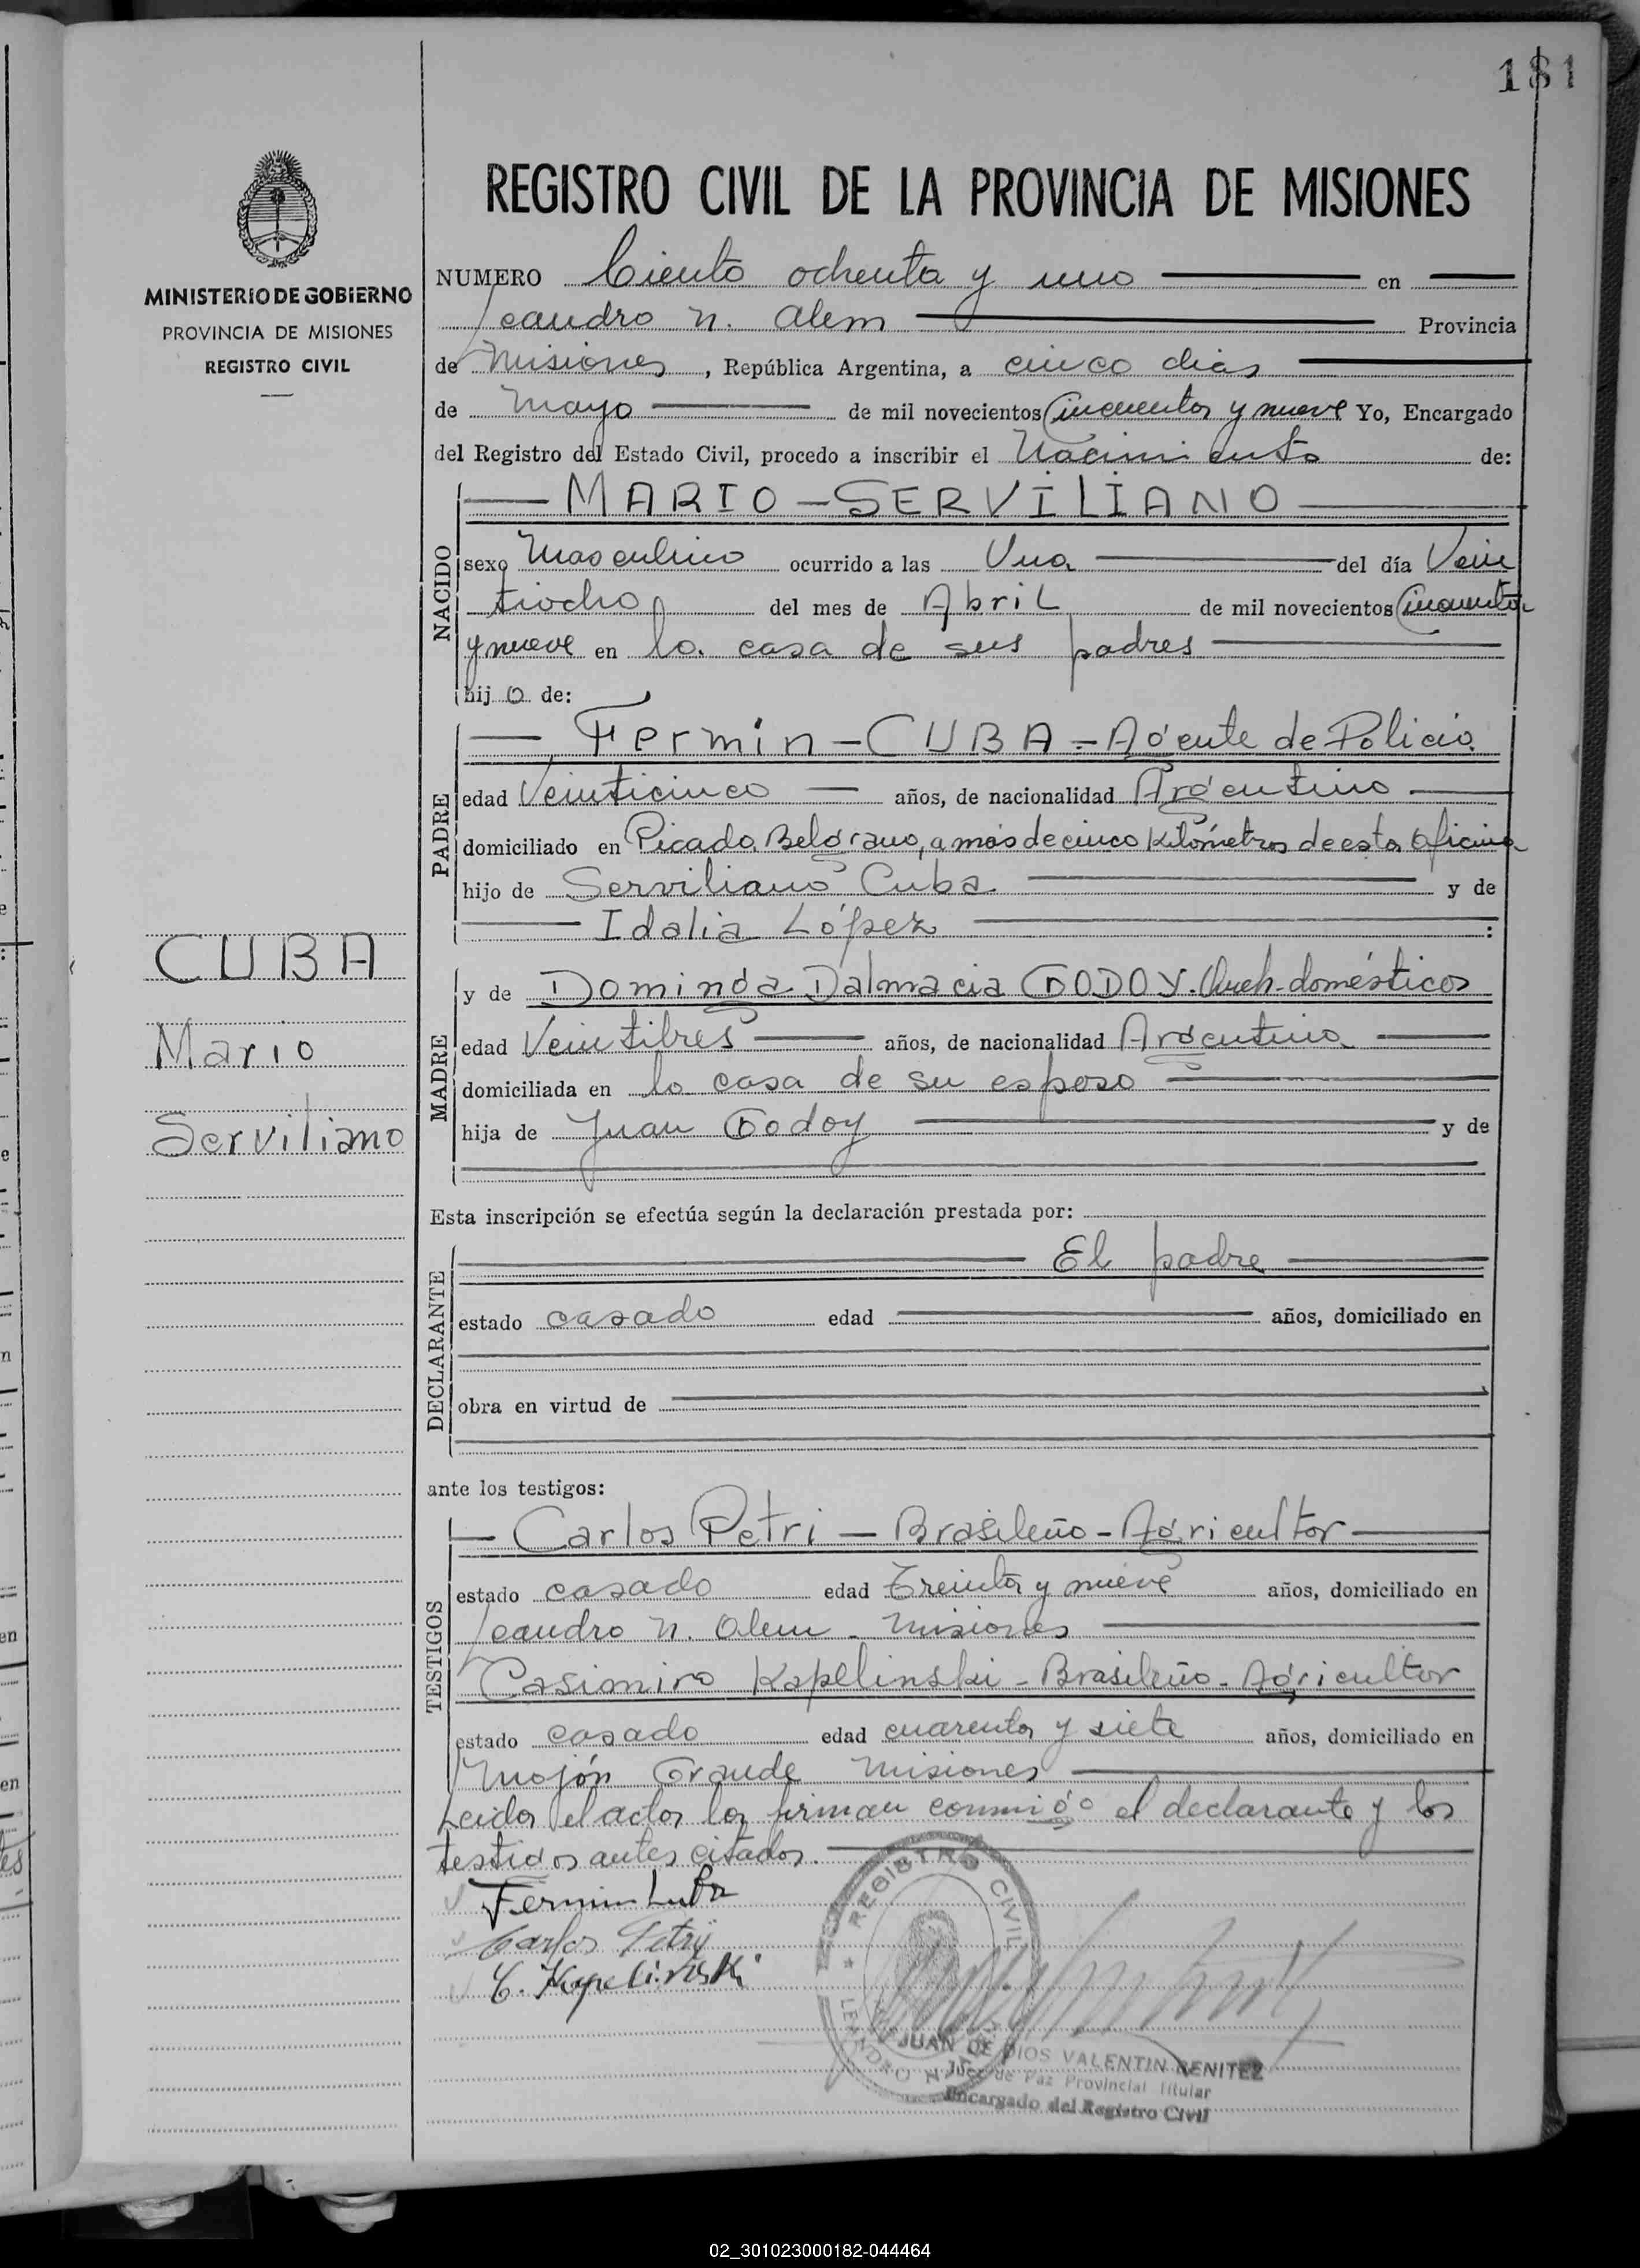 181
MINISTERIO DE GOBIERNO
PROVINCIA DE MISIONES
REGISTRO CIVIL
CUBA
Mario
Serviliano
REGISTRO CIVIL DE LA PROVINCIA DE MISIONES
NUMERO Ciento ochenta y uno en
Leandro N. Alem Provincia
de Misiones, República Argentina, a cinco dias
de Mayo de mil novecientos Cincuenta y nueve Yo, Encargado
del Registro del Estado Civil, procedo a inscribir el Nacimiento de:
NACIDO
MARIO - SERVILIANO
sexo Masculino ocurrido a las Una del día Vein
tiocho del mes de Abril de mil novecientos Cincuenta
y nueve en la casa de sus padres
hijo de:
PADRE
Fermin - CUBA - Agente de Policia
edad Veinticinco años, de nacionalidad Argentino
domiciliado en Picada Belgrano, a más de cinco Kilómetros de esta Oficina
hijo de Serviliano Cuba y de
Idalia López :
MADRE
y de Dominga Dalmacia GODOY. Queh. domésticos
edad Veintitres años, de nacionalidad Argentina
domiciliada en la casa de su esposo
hija de Juan Godoy y de
Esta inscripción se efectúa según la declaración prestada por:
DECLARANTE
El padre
estado casado edad años, domiciliado en
obra en virtud de
ante los testigos:
TESTIGOS
Carlos Petri - Brasileño - Agricultor
estado casado edad Treinta y nueve años, domiciliado en
Leandro N. Alem - Misiones
Casimiro Kapelinski - Brasileño - Agricultor
estado casado edad cuarenta y siete años, domiciliado en
Mojón Grande Misiones
Leida el acta la firman conmigo el declarante y los
testigos antes citados.
Fermin Cuba
Carlos Petry
C. Kapelinski
REGISTRO CIVIL
LEANDRO N. ALEM
JUAN DE DIOS VALENTIN BENITEZ
Juez de Paz Provincial Titular
Encargado del Registro Civil
02_301023000182-044464